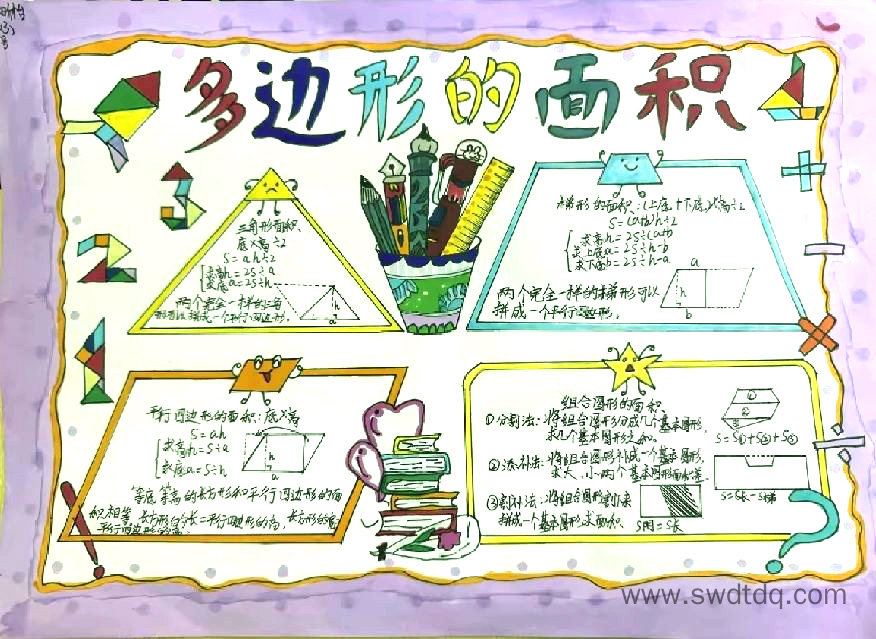 多边形的面积
三角形面积:
底×高÷2
S=ah÷2
求高h=2S÷a
求底a=2S÷h
h
a
两个完全一样的三角
形可以拼成一个平行四边形.
梯形的面积:(上底+下底)×高÷2
S=(a+b)h÷2
求高h=2S÷(a+b)
求上底a=2S÷h-b
求下底b=2S÷h-a
a
h
b
两个完全一样的梯形可以
拼成一个平行四边形.
平行四边形的面积:底×高
S=ah
求高h=S÷a
求底a=S÷h
h
a
等底等高的长方形和平行四边形的面
积相等
组合图形的面积
①分割法:将组合图形分成几个基本图形,
求几个基本图形之和.
①
②
③
S=S①+S②+S③
②添补法:将组合图形补成一个基本图形,
求大、小两个基本图形面积差.
S=S长-S梯
③割补法:将组合图形割下来
拼成一个基本图形求面积
S阴=S长
www.swdtdq.com